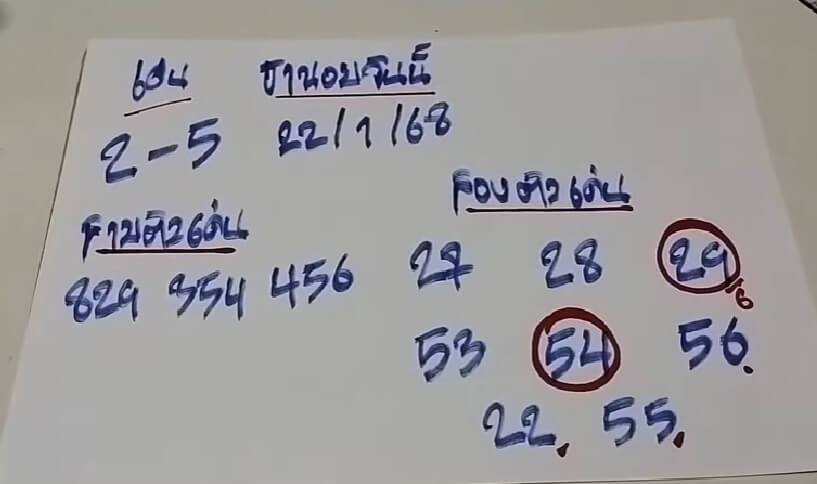 เด่น ฮานอยวันนี้
2-5 22/1/68
สามตัวเด่น
829 354 456
สองตัวเด่น
27 28 29/6
53 54 56.
22. 55.